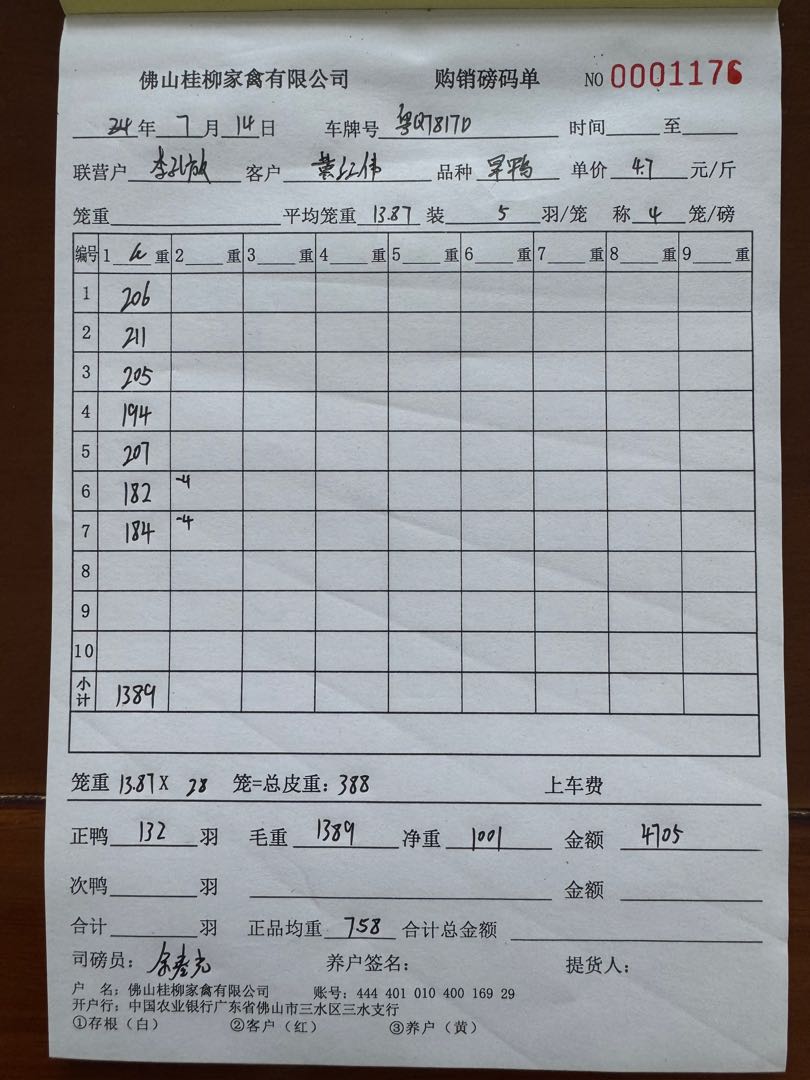 佛山桂柳家禽有限公司 购销磅码单 NO 0001176
24年 7月 14日 车牌号 粤Q7817D 时间 至
联营户 李孔放 客户 黄红伟 品种 旱鸭 单价 4.7 元/斤
笼重 平均笼重 13.87 装 5 羽/笼 称 4 笼/磅
编号 1 重 2 重 3 重 4 重 5 重 6 重 7 重 8 重 9 重
1 206
2 211
3 205
4 194
5 207
6 182 -4
7 184 -4
8
9
10
小计 1389
笼重 13.87 X 28 笼=总皮重: 388 上车费
正鸭 132 羽 毛重 1389 净重 1001 金额 4705
次鸭 羽 金额
合计 羽 正品均重 7.58 合计总金额
司磅员: 养户签名: 提货人:
户 名: 佛山桂柳家禽有限公司 账号: 444 401 010 400 169 29
开户行: 中国农业银行广东省佛山市三水区三水支行
①存根(白) ②客户(红) ③养户(黄)